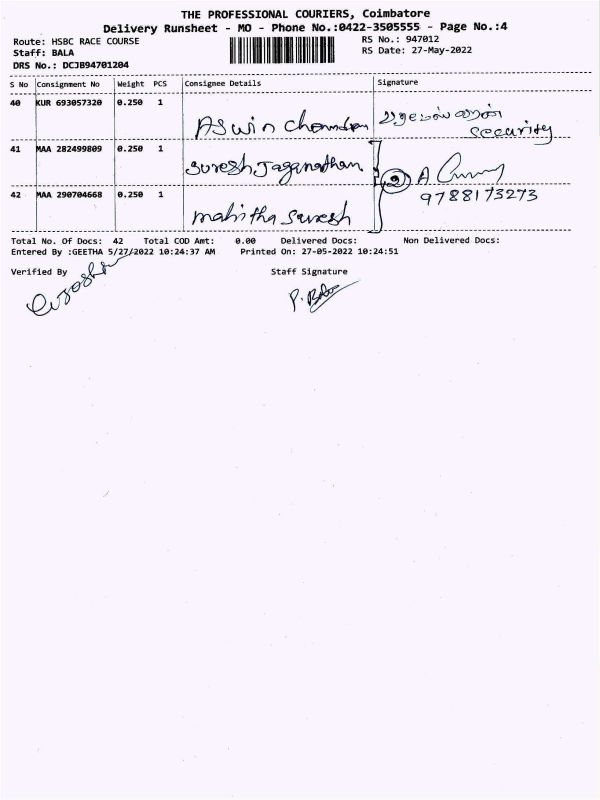 THE PROFESSIONAL COURIERS, Coimbatore
Delivery Runsheet - MO - Phone No.:0422-3505555 - Page No.:4
Route: HSBC RACE COURSE RS No.: 947012
Staff: BALA RS Date: 27-May-2022
DRS No.: DCJB94701204
S No Consignment No Weight PCS Consignee Details Signature
40 KUR 693057320 0.250 1 Aswin Chandran security
41 MAA 282499809 0.250 1 Suresh Jaganathan 2 A
42 MAA 290704668 0.250 1 Mahitha Suresh 9788173273
Total No. Of Docs: 42 Total COD Amt: 0.00 Delivered Docs: Non Delivered Docs:
Entered By :GEETHA 5/27/2022 10:24:37 AM Printed On: 27-05-2022 10:24:51
Verified By Staff Signature
P. Bala